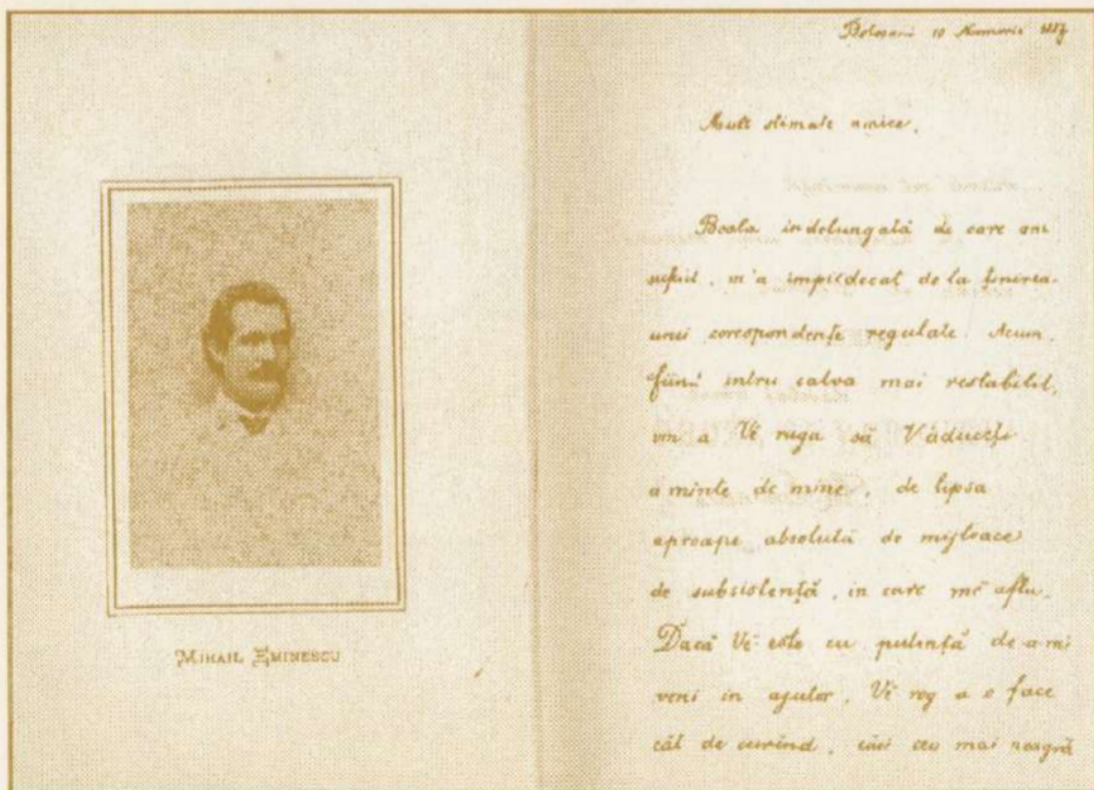 MIHAIL EMINESCU
Botosani 10 Noemvrie 1887
Mult stimate amice,
Boala indelungată de care am
suferit, m'a impiedecat de la ținerea
unei corespondențe regulate. Acum,
fiind intru catva mai restabilit,
vin a Vĕ ruga să Văduceți
aminte de mine, de lipsa
aproape absolută de mijloace
de subsistență, in care mĕ aflu.
Dacă Vĕ este cu putință de a-mi
veni in ajutor, Vĕ rog a o face
cât de curênd, căci cea mai neagră